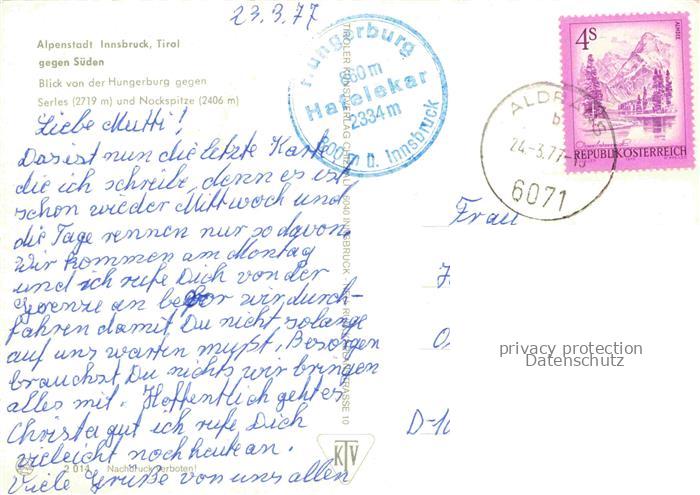 23.3.77
Alpenstadt Innsbruck, Tirol
gegen Süden
Blick von der Hungerburg gegen
Serles (2719 m) und Nockspitze (2406 m)
Liebe Mutti!
Das ist nun die letzte Karte
die ich schreibe, denn es ist
schon wieder Mittwoch und
die Tage rennen nur so davon.
Wir kommen am Montag
und ich rufe Dich von der
Grenze an bevor wir durch-
fahren damit Du nicht solange
auf uns warten mußt, Besorgen
brauchst Du nichts wir bringen
alles mit. Hoffentlich geht es
Christa gut ich rufe Dich
vielleicht noch heute an.
Viele Grüße von uns allen
2 014 Nachdruck verboten!
KTV
TIROLER KUNSTVERLAG 6040 INNSBRUCK
STRASSE 10
Hungerburg
860 m
Hafelekar
2334 m
Innsbruck
4S
ALMSEE
REPUBLIK ÖSTERREICH
ALDRANS
b
24.-3.77-15
6071
Frau
D-1
privacy protection
Datenschutz